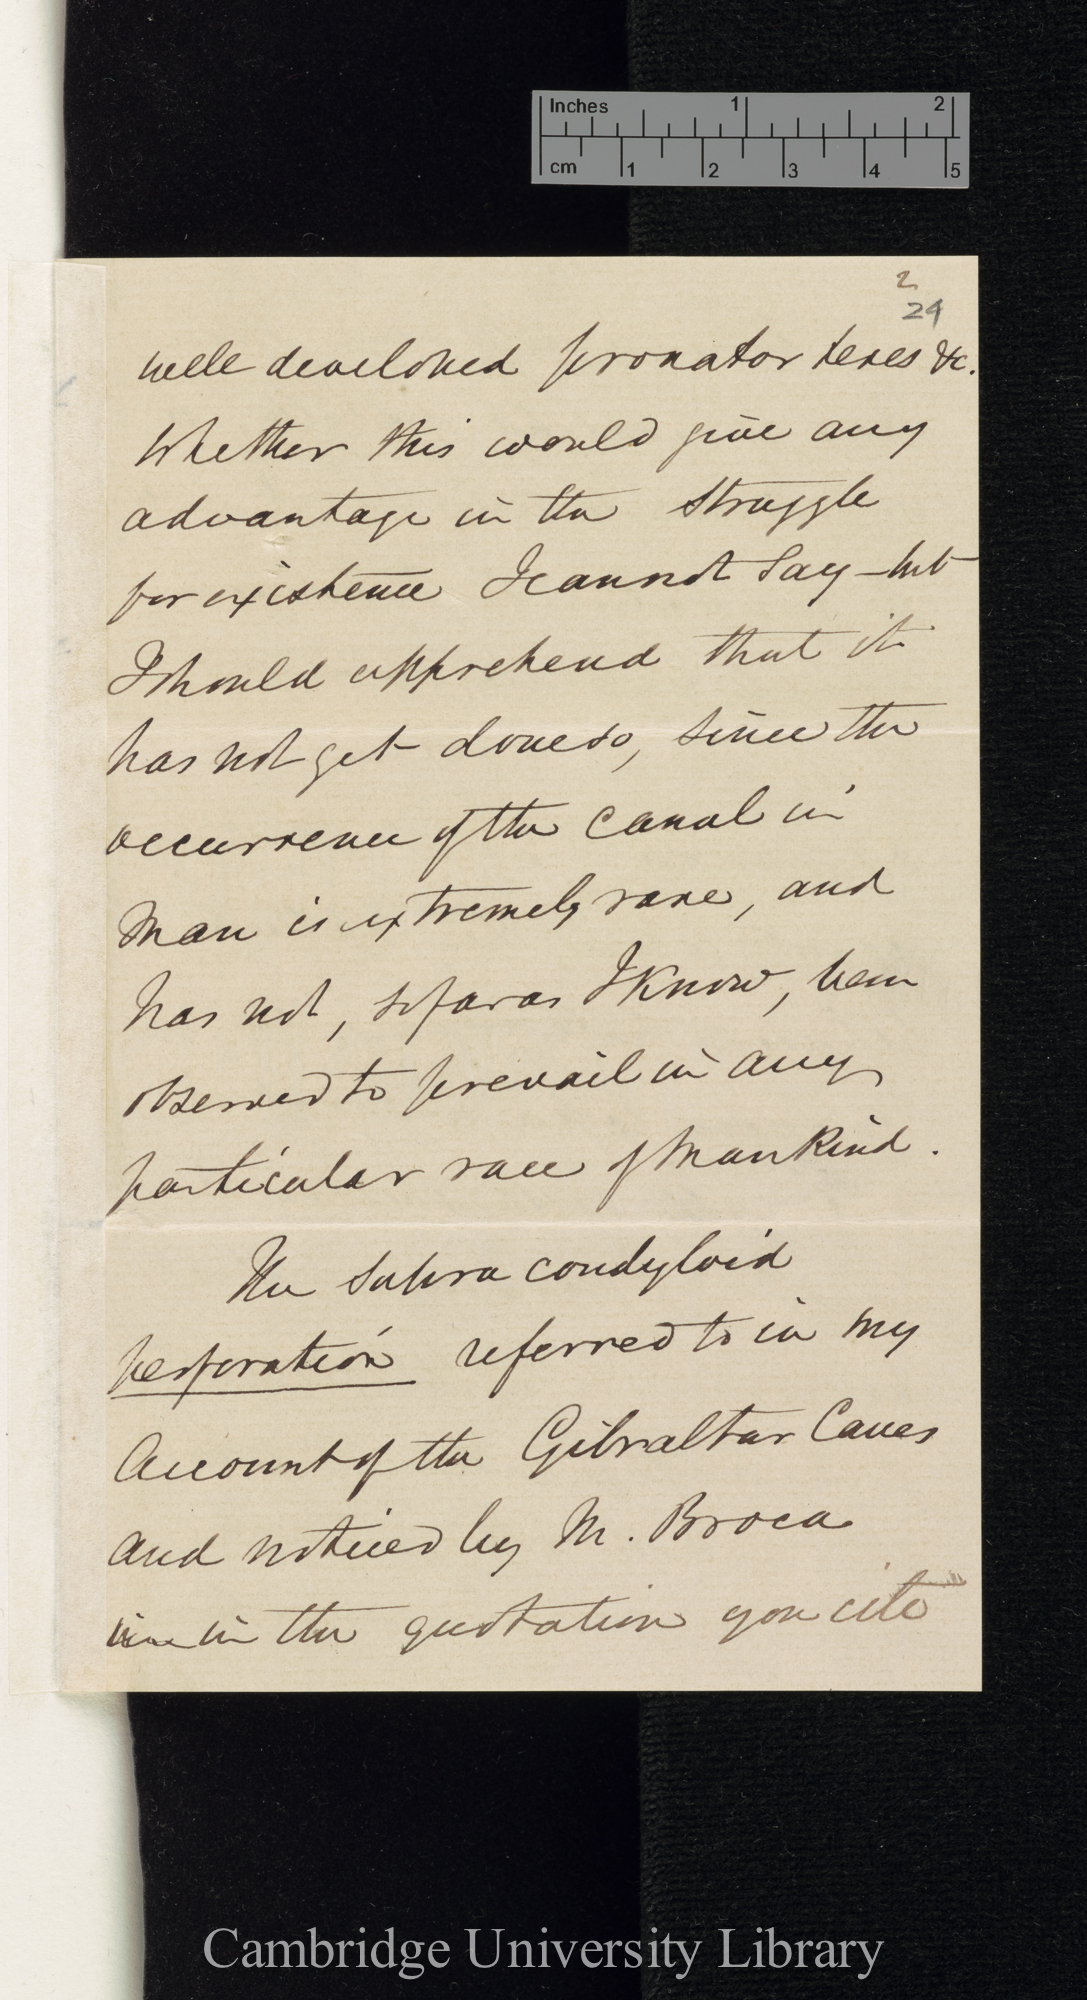 Inches 1 2
cm 1 2 3 4 5
2
24
well developed pronator teres &c.
Whether this would give any
advantage in the struggle
for existence I cannot say – but
I should apprehend that it
has not yet done so, since the
occurrence of the canal in
Man is extremely rare, and
has not, so far as I know, been
observed to prevail in any
particular race of Mankind.
The supra condyloid
perforation referred to in my
Account of the Gibraltar Caves
and noticed by M. Broca
in the quotation you cite
Cambridge University Library